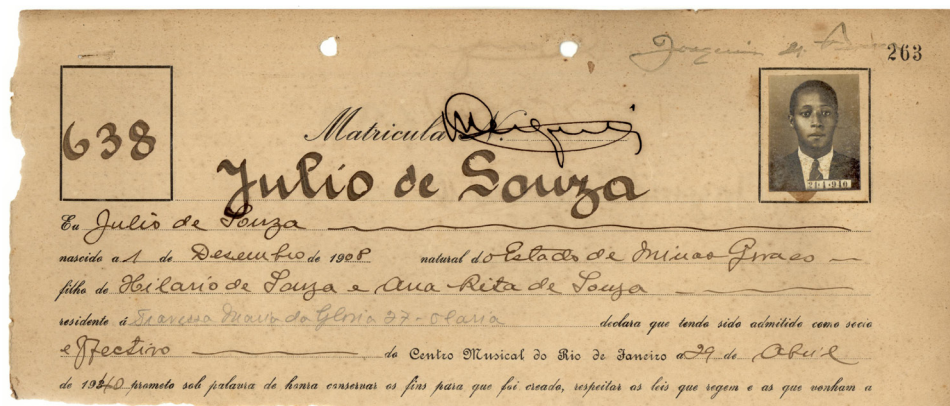 Joaquim
263
638
Matricula N.
Julio de Souza
251-910
Eu Julio de Souza
nascido a 1 de Desembro de 1908 natural do Estado de Minas Geraes
filho de Hilario de Souza e Ana Rita de Souza
residente á Travessa Maria da Gloria 27 - Olaria declara que tendo sido admitido como sócio
effectivo do Centro Musical do Rio de Janeiro a 29 de Abril
de 1940 prometo sob palavra de honra conservar os fins para que foi creado, respeitar as leis que regem e as que venham a